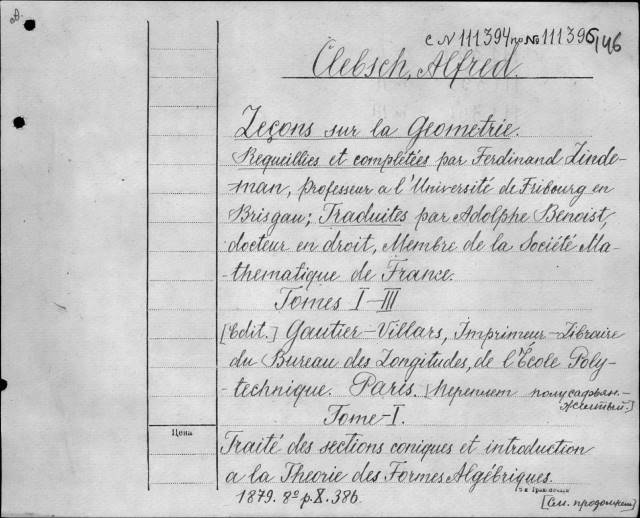 с N 111394 по No 111396/146
Clebsch, Alfred.
Leçons sur la Geometrie.
Requeillies et complétées par Ferdinand Linde-
man, professeur a l'Université de Fribourg en
Brisgau; Traduites par Adolphe Benoist,
docteur en droit, Membre de la Société Ma-
-thematique de France.
Tomes I-III
[Edit.] Gautier-Villars, Imprimeur-Libraire
du Bureau des Longitudes, de l'École Poly-
-technique. Paris. [Переплет полусафьян-
-желтый.]
Tome-I.
Цена
Traité des sections coniques et introduction
a la Theorie des Formes Algébriques.
1879. 8º p. X. 386.
[См. продолжен]